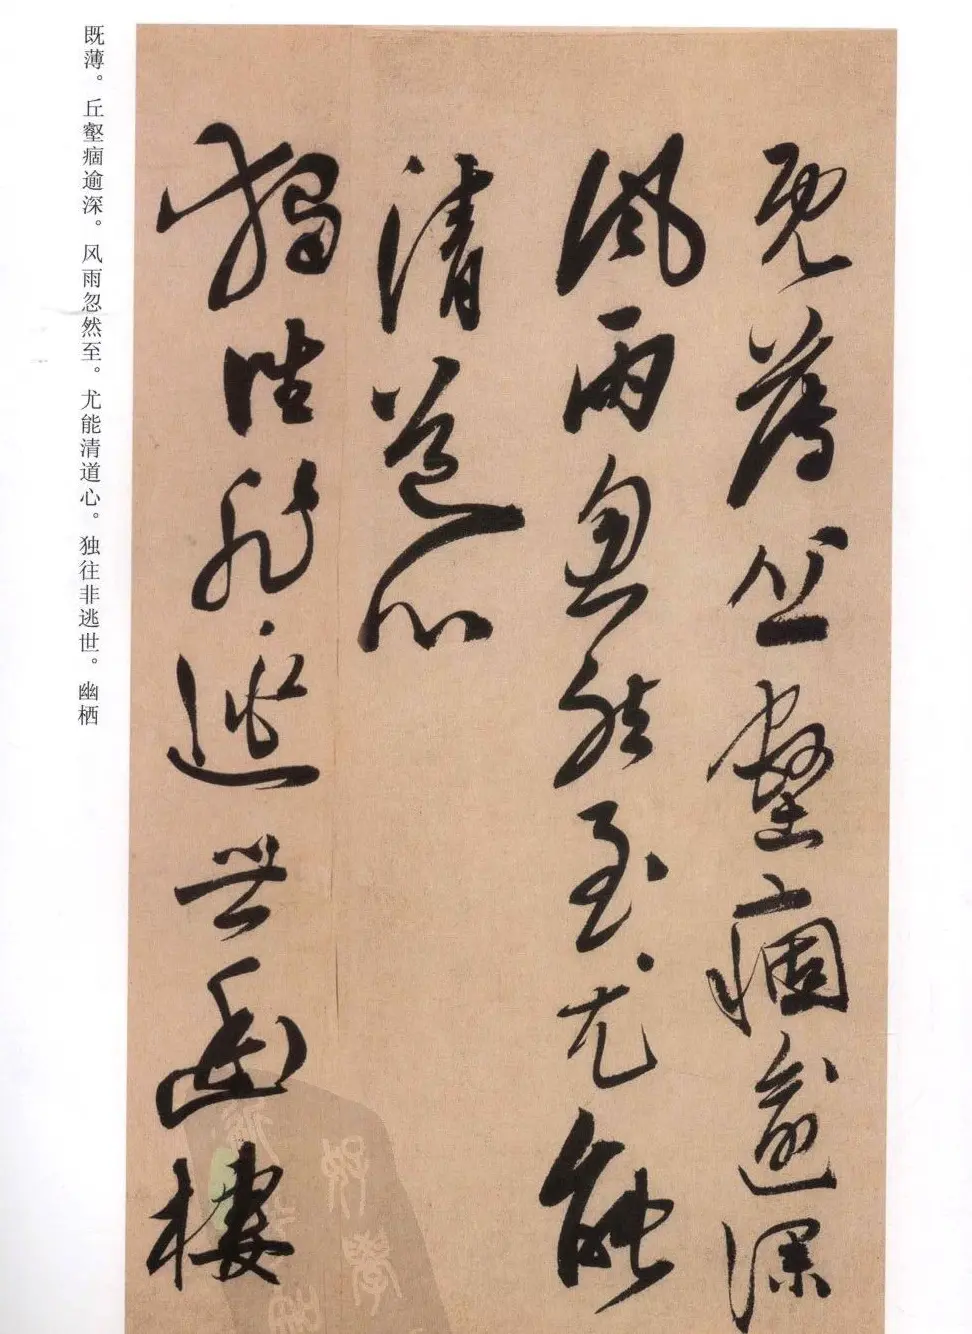 既薄丘壑痼逾深
风雨忽然至尤能
清道心
獨往非逃世幽棲
既薄。丘壑痼逾深。风雨忽然至。尤能清道心。独往非逃世。幽栖